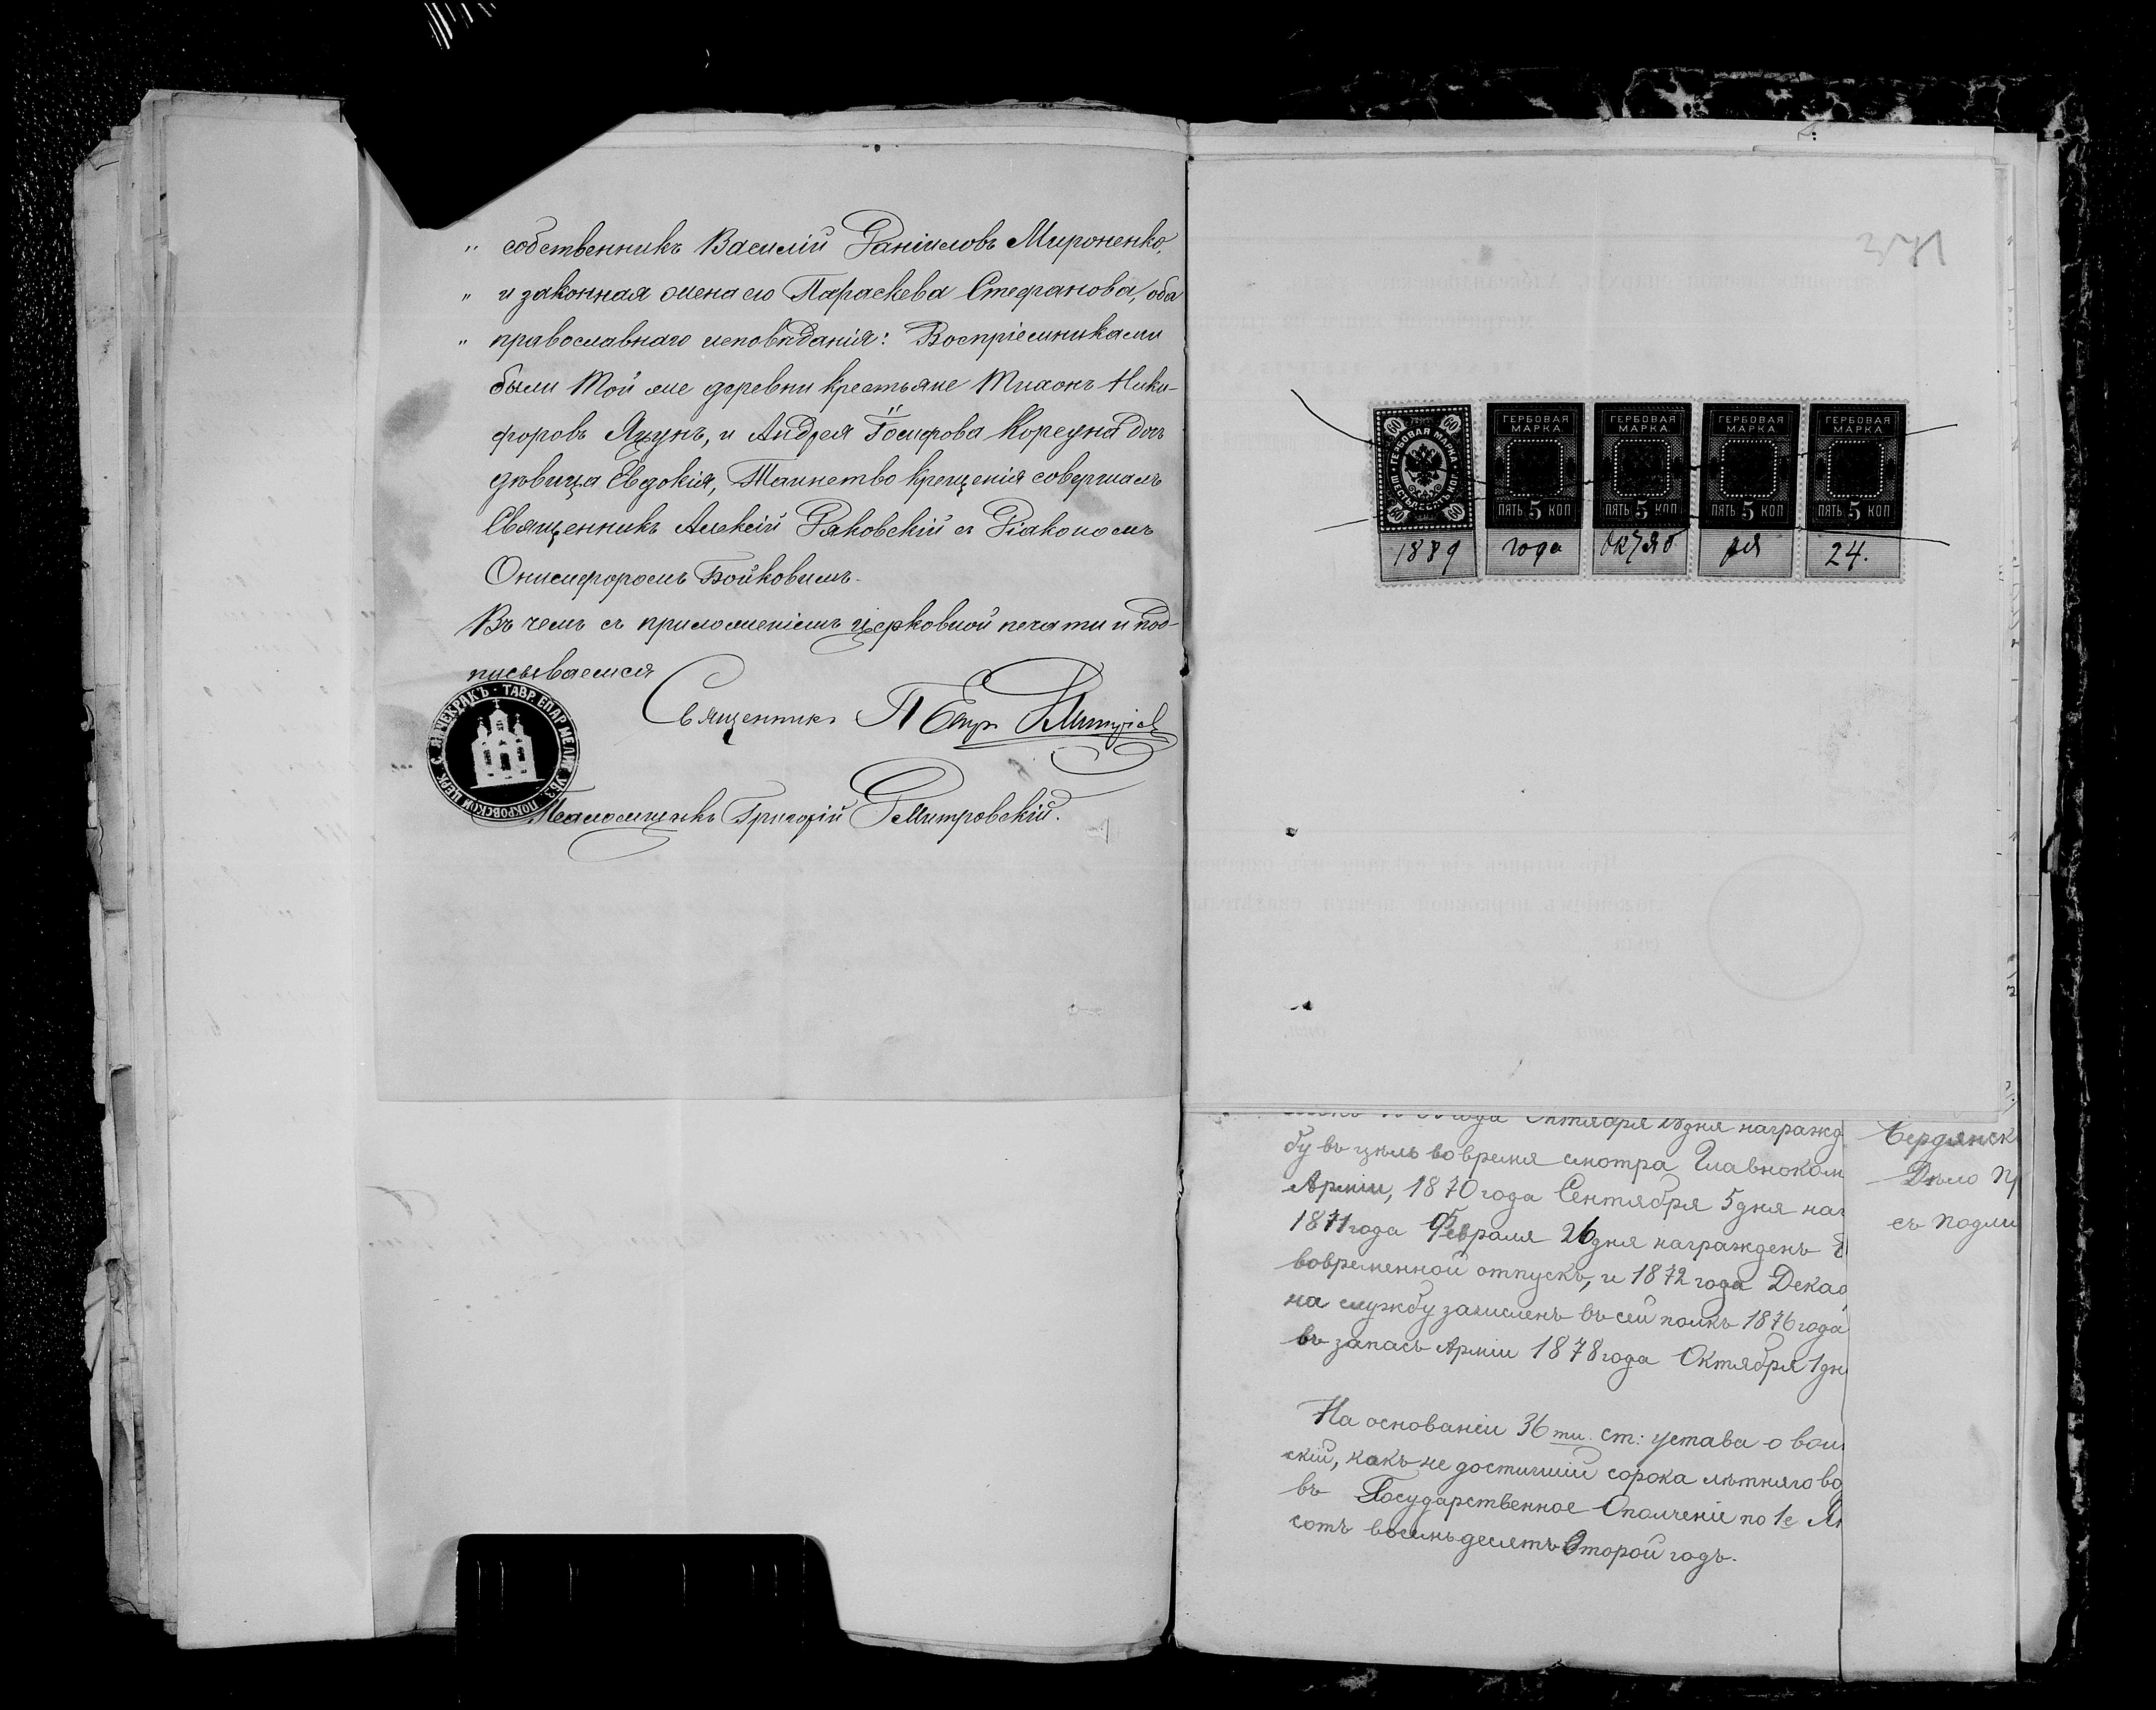 „ собственникъ Василій Даніиловъ Мироненко,
„ и законная жена его Параскева Стефанова, оба
„ православнаго исповѣданія: Воспріемниками
были той же деревни крестьяне Тихонъ Ники-
форовъ Яцунъ, и Андрея Іосифова Корецна дочь
дѣвица Евдокія, Таинство крещенія совершалъ
Священникъ Алексій Раковскій съ Діакономъ
Онисифоромъ Бойковимъ.
Въ чемъ съ приложеніемъ церковной печати и под-
писываемся
Священникъ Петръ
Псаломщикъ Григорій Дмитровскій.
ПОКРОВСКОЙ ЦЕРК. С. ЯНЧЕКРАКЪ · ТАВР. ЕПАР. МЕЛИТ. УѢЗ.
ГЕРБОВАЯ МАРКА ШЕСТЬДЕСЯТЪ КОП. 60 60 60 60
ГЕРБОВАЯ МАРКА. ПЯТЬ 5 КОП
ГЕРБОВАЯ МАРКА. ПЯТЬ 5 КОП
ГЕРБОВАЯ МАРКА. ПЯТЬ 5 КОП
ГЕРБОВАЯ МАРКА. ПЯТЬ 5 КОП
1889 года Октяб ря 24.
года Октября дня награжд
бу въ цѣль вовремя смотра Главноком
Арміи, 1870 года Сентября 5 дня наг
1871 года Февраля 26 дня награжденъ
вовременной отпускъ, и 1872 года Декаб
на службу зачисленъ въ сей полкъ 1876 года
въ запасъ Арміи 1878 года Октября 1 дн
На основаніи 36 ти. ст: устава о вои
скій, какъ не достигшій сорока лѣтняго во
въ Государственное Ополченіе по 1е Ян
сотъ восемьдесятъ Второй годъ.
Бердянск
Дѣло Пр
съ подли